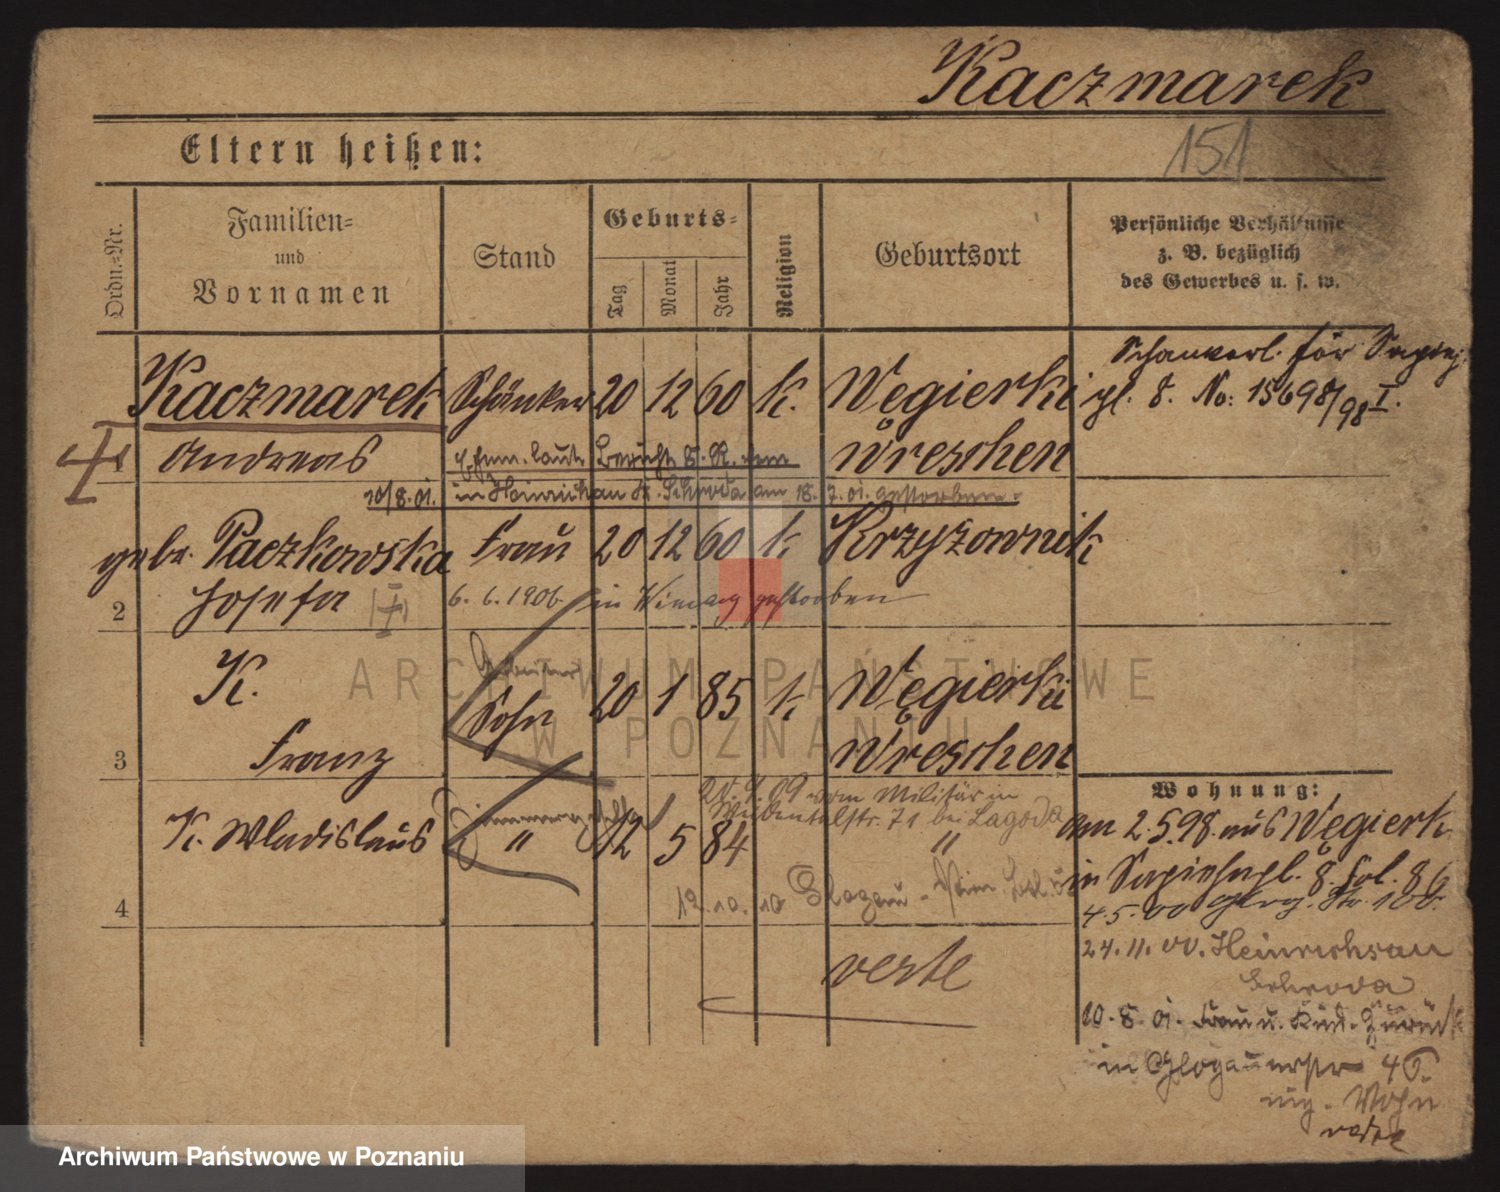 Kaczmarek
151
Eltern heißen:
Ordn.-Nr.
Familien-
und
Vornamen
Stand
Geburts-
Tag
Monat
Jahr
Religion
Geburtsort
Persönliche Verhältnisse
z. B. bezüglich
des Gewerbes u. s. w.
Kaczmarek Schänker 20 12 60 k. Wegierki
Schankerl. für
pl. 8. No: 15698/98 I.
1 Andreas laut Bericht Wreschen
10/8.01. in Heinrichau Kr. Schroda am 18.7.01. gestorben.
gebr. Paczkowska Frau 20 12 60 k Krzyżownik
2 Josefa 6.6.1906 in gestorben
K. Sohn 20 1 85 k. Węgierki
3 Franz Wreschen
20.9.09 vom Militär in
71 bei Lagoda
K. Wladislaus " 12 5 84 "
4
12.10.10 Glogau
verte
Wohnung:
am 2.5.98. aus Węgierk
in Sapiehapl. 8. fol. 86
4.5.00 Glog. Str. 106.
24.11.00. Heinrichsau
Schroda
10.8.01. Frau u. Kind. zurück
in Glogauerstr 46
Wohn
ARCHIWUM PAŃSTWOWE
W POZNANIU
Archiwum Państwowe w Poznaniu